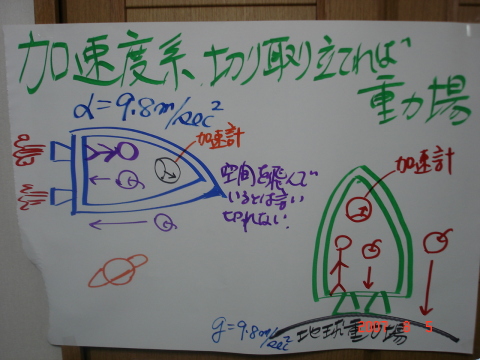 加速度系、切り取り立てれば
重力場
α=9.8m/sec²
加速計
空間を飛んで
いるとは言い
切れない
加速計
g=9.8m/sec²
地球重力場